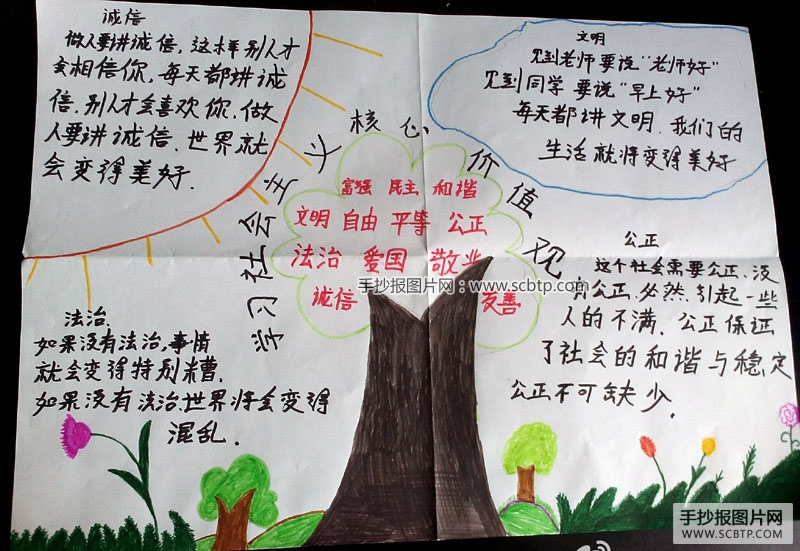 诚信
做人要讲诚信，这样别人才
会相信你，每天都讲诚
信，别人才会喜欢你，做
人要讲诚信，世界就
会变得美好．
文明
见到老师要说“老师好”
见到同学要说“早上好”
每天都讲文明．我们的
生活就将变得美好
学习社会主义核心价值观
富强 民主 和谐
文明 自由 平等 公正
法治 爱国 敬业
诚信 友善
手抄报图片网：www.scbtp.com
法治．
如果没有法治，事情
就会变得特别糟．
如果没有法治，世界将会变得
混乱．
公正
这个社会需要公正、没
有公正、必然、引起一些
人的不满．公正保证
了社会的和谐与稳定
公正不可缺少．
手抄报图片网
WWW.SCBTP.COM